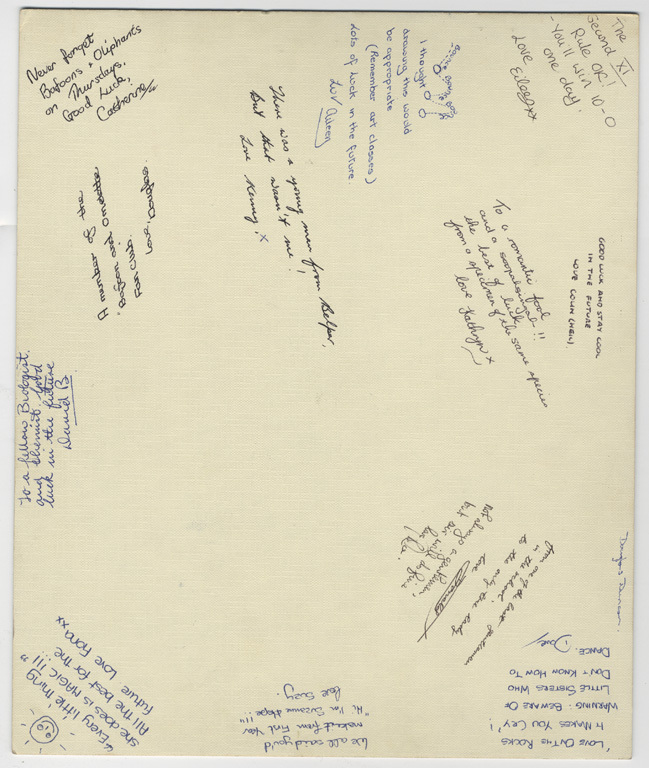 Never forget
Bafoons & Oliphants
on Thursdays.
Good Luck,
Catherine
The
Second XI
Rule OK!
- You'll win 10-0
one day.
Love
Eileen xx
I thought
drawing this would
be appropriate
(Remember art classes)
Lots of luck in the future
There was a young man from Belper,
But that wasn't me!
Love Kenny. x
A member of the
Bafoon and
Fan Club.
Love, Douglas.
To a romantic fool
and a
the best of luck
from a specimen of the same species
love Kathryn x
GOOD LUCK AND STAY COOL
IN THE FUTURE
LOVE COLIN (HEIN).
To a fellow Biologist
and chemist. Good
luck in the future
David B
from one of the last gentlemen
in the school
to the only true lady
love
Not always a gentleman,
but
Douglas Duncan.
'LOVE ON THE ROCKS
IT MAKES YOU CRY'!
WARNING: BEWARE OF
LITTLE SISTERS WHO
DON'T KNOW HOW TO
DANCE.
We all said you'd
"Hi, I'm Suzanne
love Suzy.
"Every little thing
she does is MAGIC !!!"
All the best for the
future Love Fiona xx